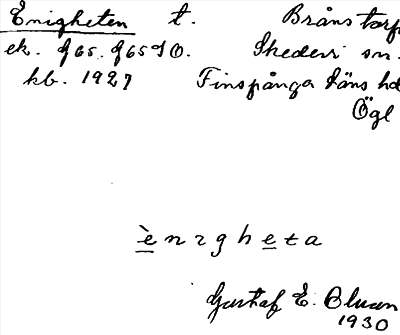 Enigheten t. Brånstorp
ek. f 65. f 65 SO. Skedevi sn.
kb. 1927 Finspånga läns hd
Ögl
ènıgheta
Gustaf E. Oluan
1930